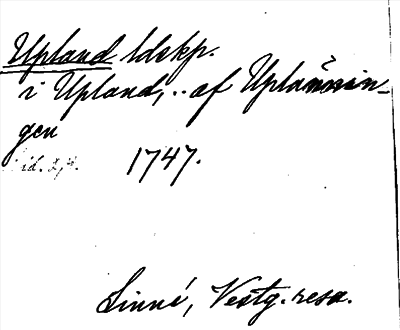 Upland ldskp.
i Upland, .. af Uplännin-
gen
id. s,4.
1747.
Linné, Vestg. resa.